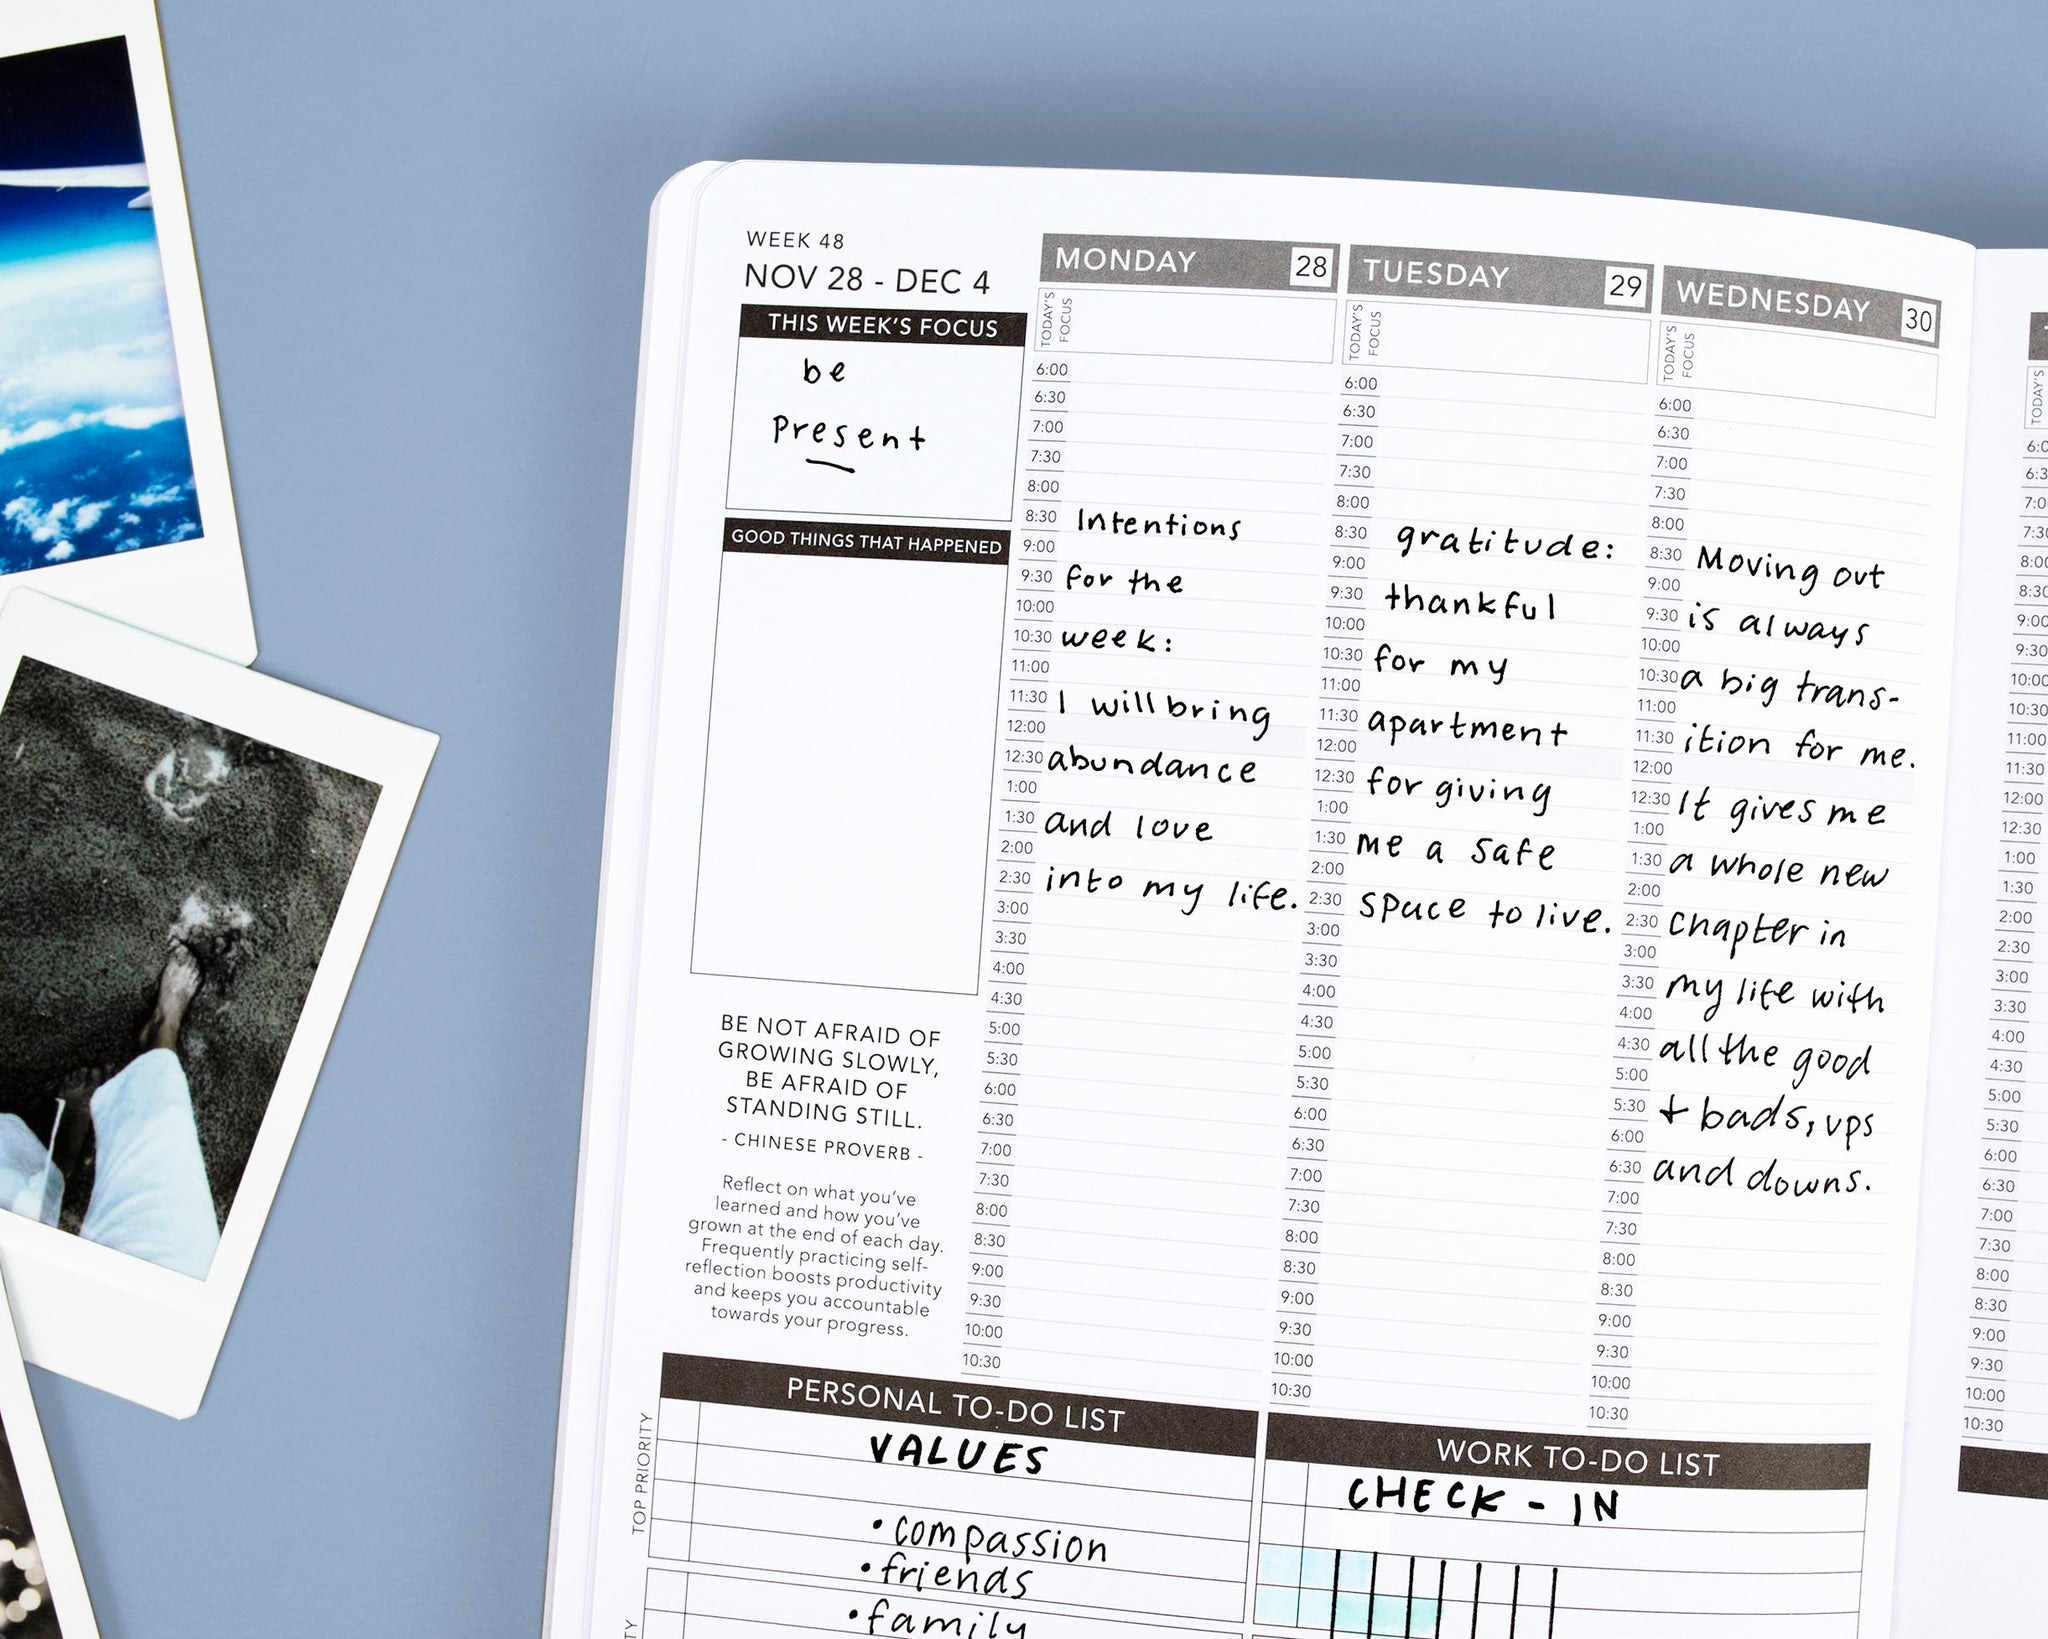 WEEK 48
NOV 28 - DEC 4
THIS WEEK'S FOCUS
be
Present
GOOD THINGS THAT HAPPENED
BE NOT AFRAID OF
GROWING SLOWLY,
BE AFRAID OF
STANDING STILL.
- CHINESE PROVERB -
Reflect on what you've
learned and how you've
grown at the end of each day.
Frequently practicing self-
reflection boosts productivity
and keeps you accountable
towards your progress.
MONDAY 28
TODAY'S
FOCUS
6:00
6:30
7:00
7:30
8:00
8:30 Intentions
9:00
9:30 for the
10:00
10:30 week:
11:00
11:30 I will bring
12:00
12:30 abundance
1:00
1:30 and love
2:00
2:30 into my life.
3:00
3:30
4:00
4:30
5:00
5:30
6:00
6:30
7:00
7:30
8:00
8:30
9:00
9:30
10:00
10:30
TUESDAY 29
TODAY'S
FOCUS
6:00
6:30
7:00
7:30
8:00
8:30 gratitude:
9:00
9:30 thankful
10:00
10:30 for my
11:00
11:30 apartment
12:00
12:30 for giving
1:00
1:30 me a safe
2:00
2:30 space to live.
3:00
3:30
4:00
4:30
5:00
5:30
6:00
6:30
7:00
7:30
8:00
8:30
9:00
9:30
10:00
10:30
WEDNESDAY 30
TODAY'S
FOCUS
6:00
6:30
7:00
7:30
8:00
8:30 Moving out
9:00
9:30 is always
10:00
10:30 a big trans-
11:00
11:30 ition for me.
12:00
12:30 It gives me
1:00
1:30 a whole new
2:00
2:30 chapter in
3:00
3:30 my life with
4:00
4:30 all the good
5:00
5:30 + bads, ups
6:00
6:30 and downs.
7:00
7:30
8:00
8:30
9:00
9:30
10:00
10:30
TODAY'S
7:00
7:30
8:00
8:30
9:00
9:30
10:00
10:30
11:00
11:30
12:00
12:30
1:00
1:30
2:00
2:30
3:00
3:30
4:00
4:30
5:00
5:30
6:00
6:30
7:00
7:30
8:00
8:30
9:00
9:30
10:00
10:30
PERSONAL TO-DO LIST
TOP PRIORITY
VALUES
• compassion
• friends
• family
WORK TO-DO LIST
CHECK - IN